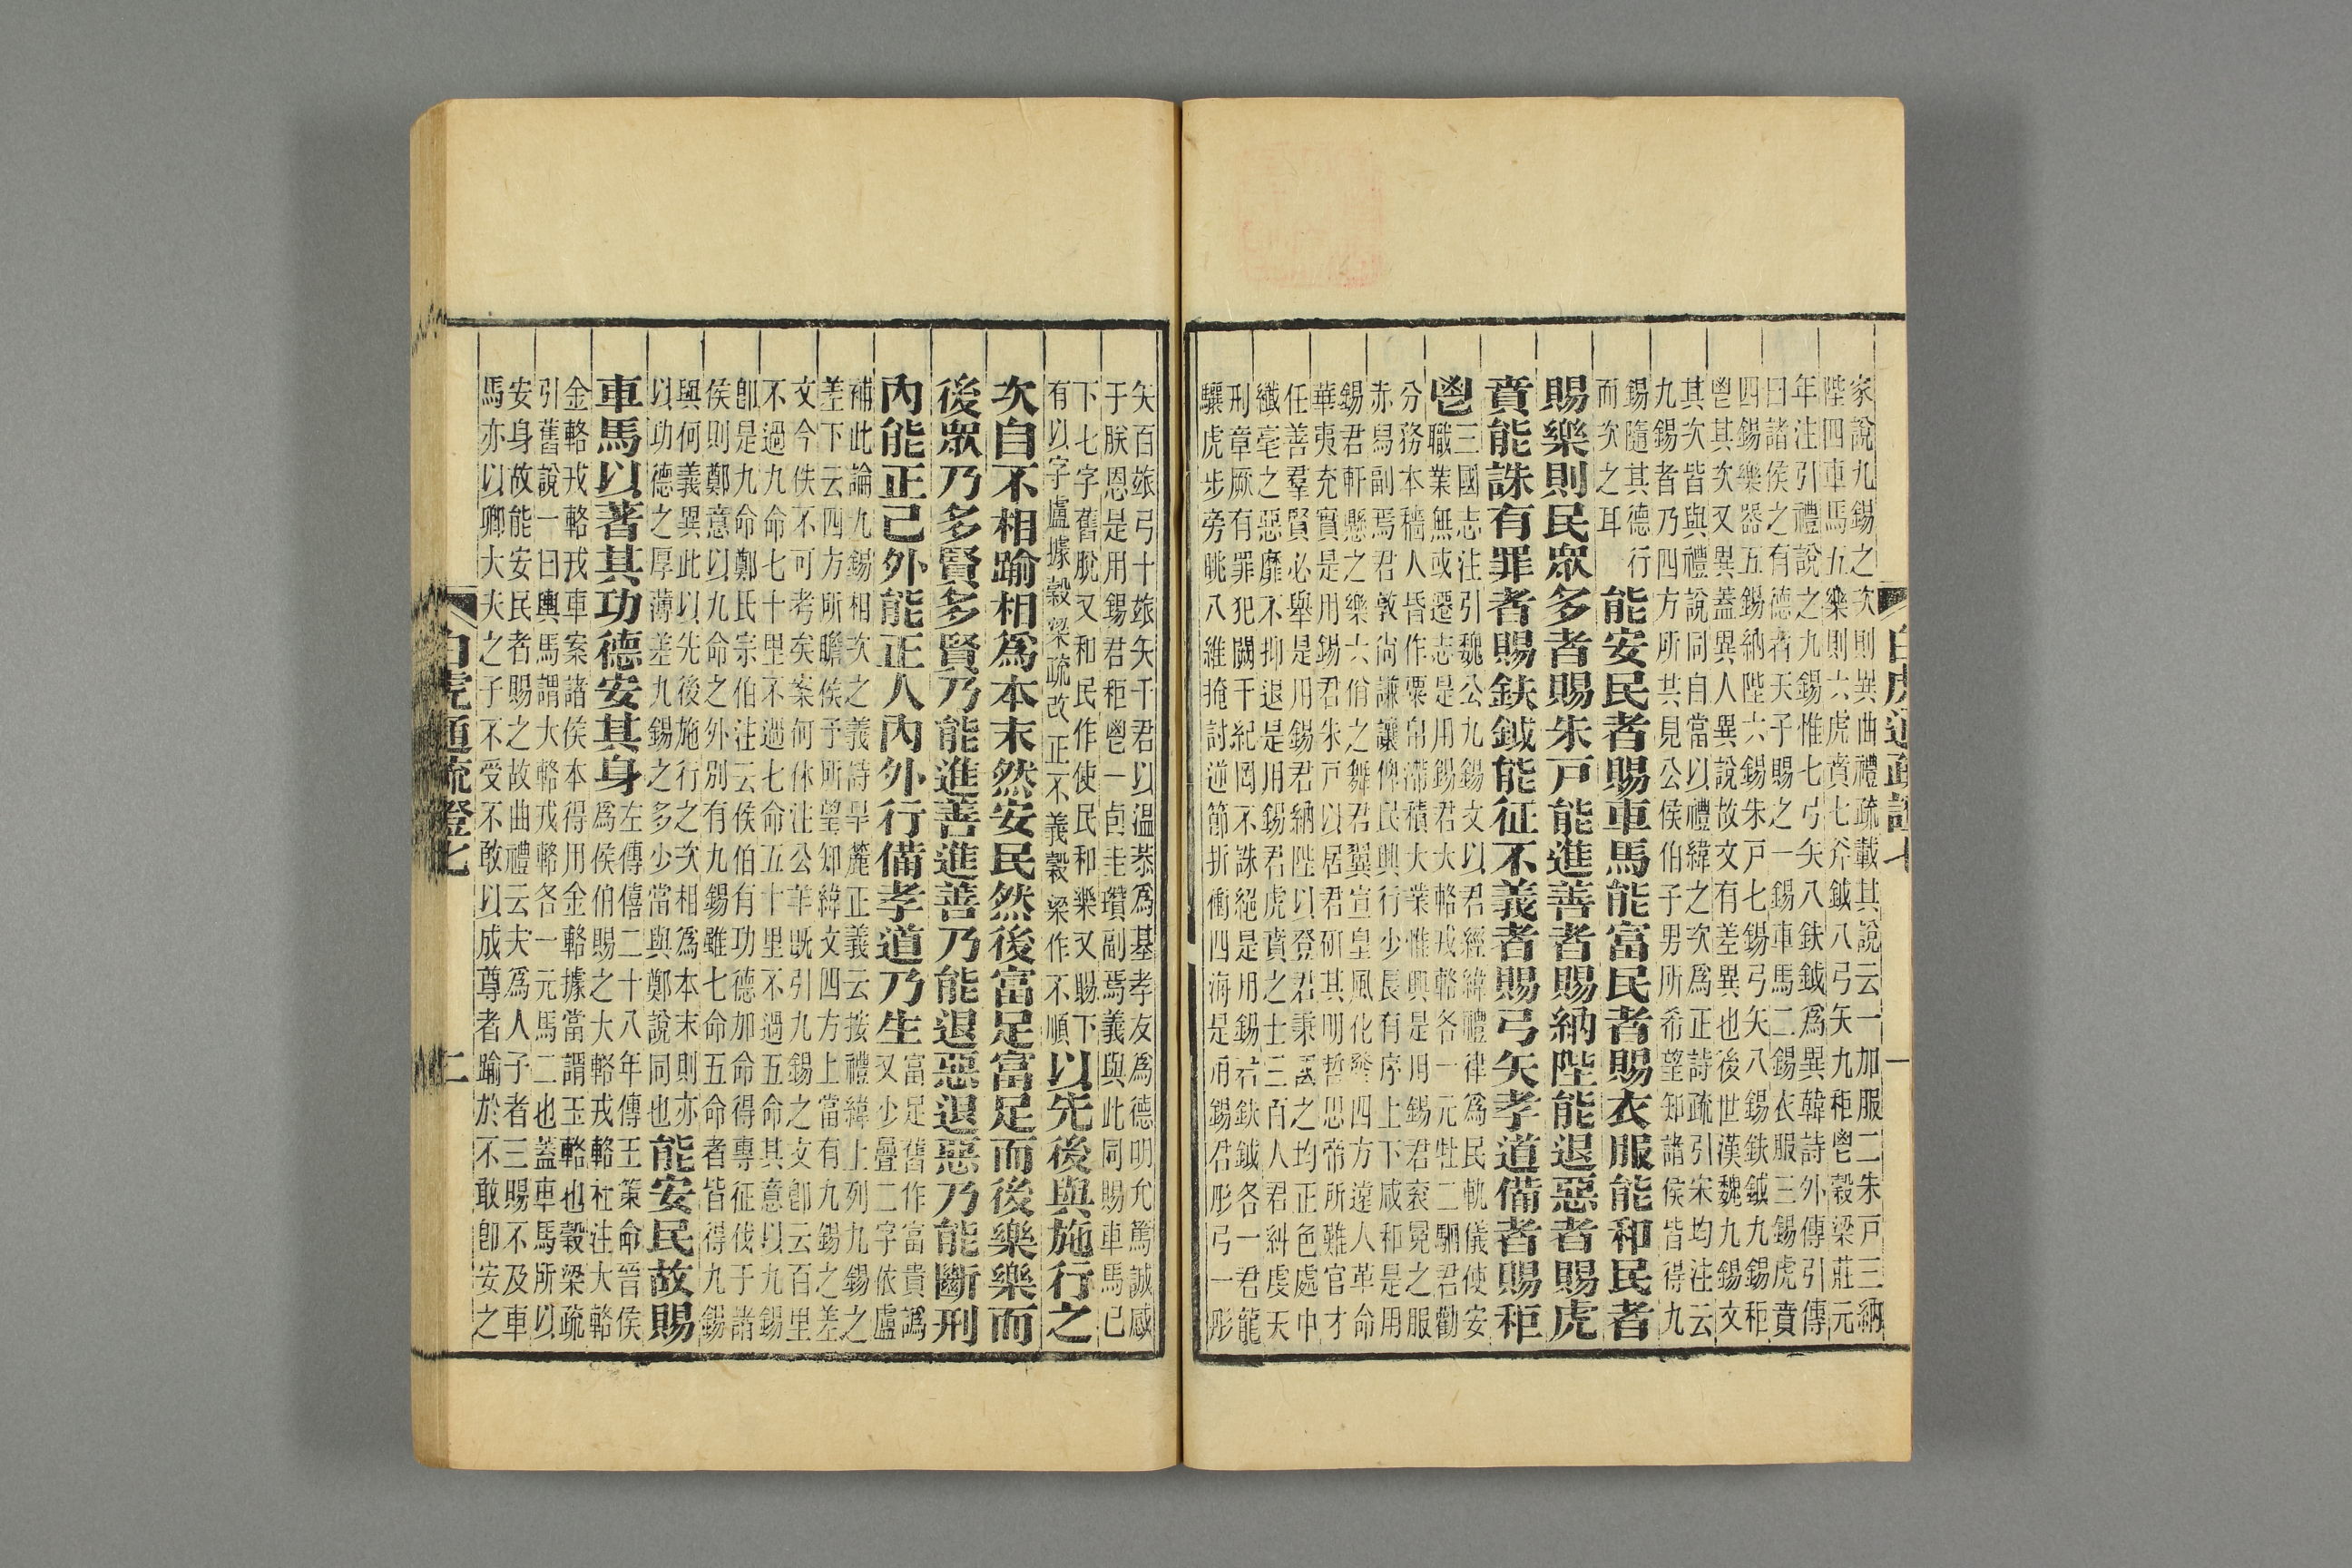 白虎通疏證七
一
家說九錫之次則異曲禮疏載其說云一加服二朱戶三納
陛四車馬五樂則六虎賁七斧鉞八弓矢九秬鬯穀梁莊元
年注引禮說之九錫惟七弓矢八鈇鉞爲異韓詩外傳引傳
曰諸侯之有德者天子賜之一錫車馬二錫衣服三錫虎賁
四錫樂器五錫納陛六錫朱戶七錫弓矢八錫鈇鉞九錫秬
鬯其次又異蓋異人異說故文有差異也後世漢魏九錫文
其次皆與禮說同自當以禮緯之次爲正詩疏引宋均注云
九錫者乃四方所共見公侯伯子男所希望知諸侯皆得九
錫隨其德行
而次之耳
能安民者賜車馬能富民者賜衣服能和民者
賜樂則民眾多者賜朱戶能進善者賜納陛能退惡者賜虎
賁能誅有罪者賜鈇鉞能征不義者賜弓矢孝道備者賜秬
鬯
三國志注引魏公九錫文以君經緯禮律爲民軌儀使安
職業無或遷志是用錫君大輅戎輅各一元牡二駟君勸
分務本穡人皆作粟帛滯積大業惟興是用錫君袞冕之服
赤舄副焉君敦尚謙讓俾民興行少長有序上下咸和是用
錫君軒懸之樂六佾之舞君翼宣皇風化發四方遠人革命
華夷充實是用錫君朱戶以居君研其明哲思帝所難官才
任善羣賢必舉是用錫君納陛以登君秉國之均正色處中
纖毫之惡靡不抑退是用錫君虎賁之士三百人君糾虔天
刑章厥有罪犯闕干紀罔不誅絕是用錫君鈇鉞各一君龍
驤虎步旁眺八維掩討逆節折衝四海是用錫君彤弓一彤
矢百旅弓十旅矢千君以溫恭爲基孝友爲德明允篤誠感
于朕恩是用錫君秬鬯一卣圭瓚副焉義與此同賜車馬已
下七字舊脫又和民作使民和樂又賜下
有以字盧據穀梁疏改正不義穀梁作不順
以先後與施行之
次自不相踰相爲本末然安民然後富足富足而後樂樂而
後眾乃多賢多賢乃能進善進善乃能退惡退惡乃能斷刑
內能正己外能正人內外行備孝道乃生
富足舊作富貴譌
又少疊二字依盧
補此論九錫相次之義詩旱麓正義云按禮緯上列九錫之
差下云四方所瞻侯子所望知緯文四方上當有九錫之差
文今佚不可考矣案何休注公羊既引九錫之文卽云百里
不過九命七十里不過七命五十里不過五命其意以九錫
卽是九命鄭氏宗伯注云侯伯有功德加命得專征伐于諸
侯則鄭意以九命之外別有九錫雖七命五命者皆得九錫
與何義異此以先後施行之次相爲本末則亦
以功德之厚薄差九錫之多少當與鄭說同也
能安民故賜
車馬以著其功德安其身
左傳僖二十八年傳王策命晉侯
爲侯伯賜之大輅戎輅社注大輅
金輅戎輅戎車案諸侯本得用金輅據當謂玉輅也穀梁疏
引舊說一曰輿馬謂大輅戎輅各一元馬二也蓋車馬所以
安身故能安民者賜之故曲禮云夫爲人子者三賜不及車
馬亦以卿大夫之子不受不敢以成尊者踰於不敢卽安之
白虎通疏證七
二